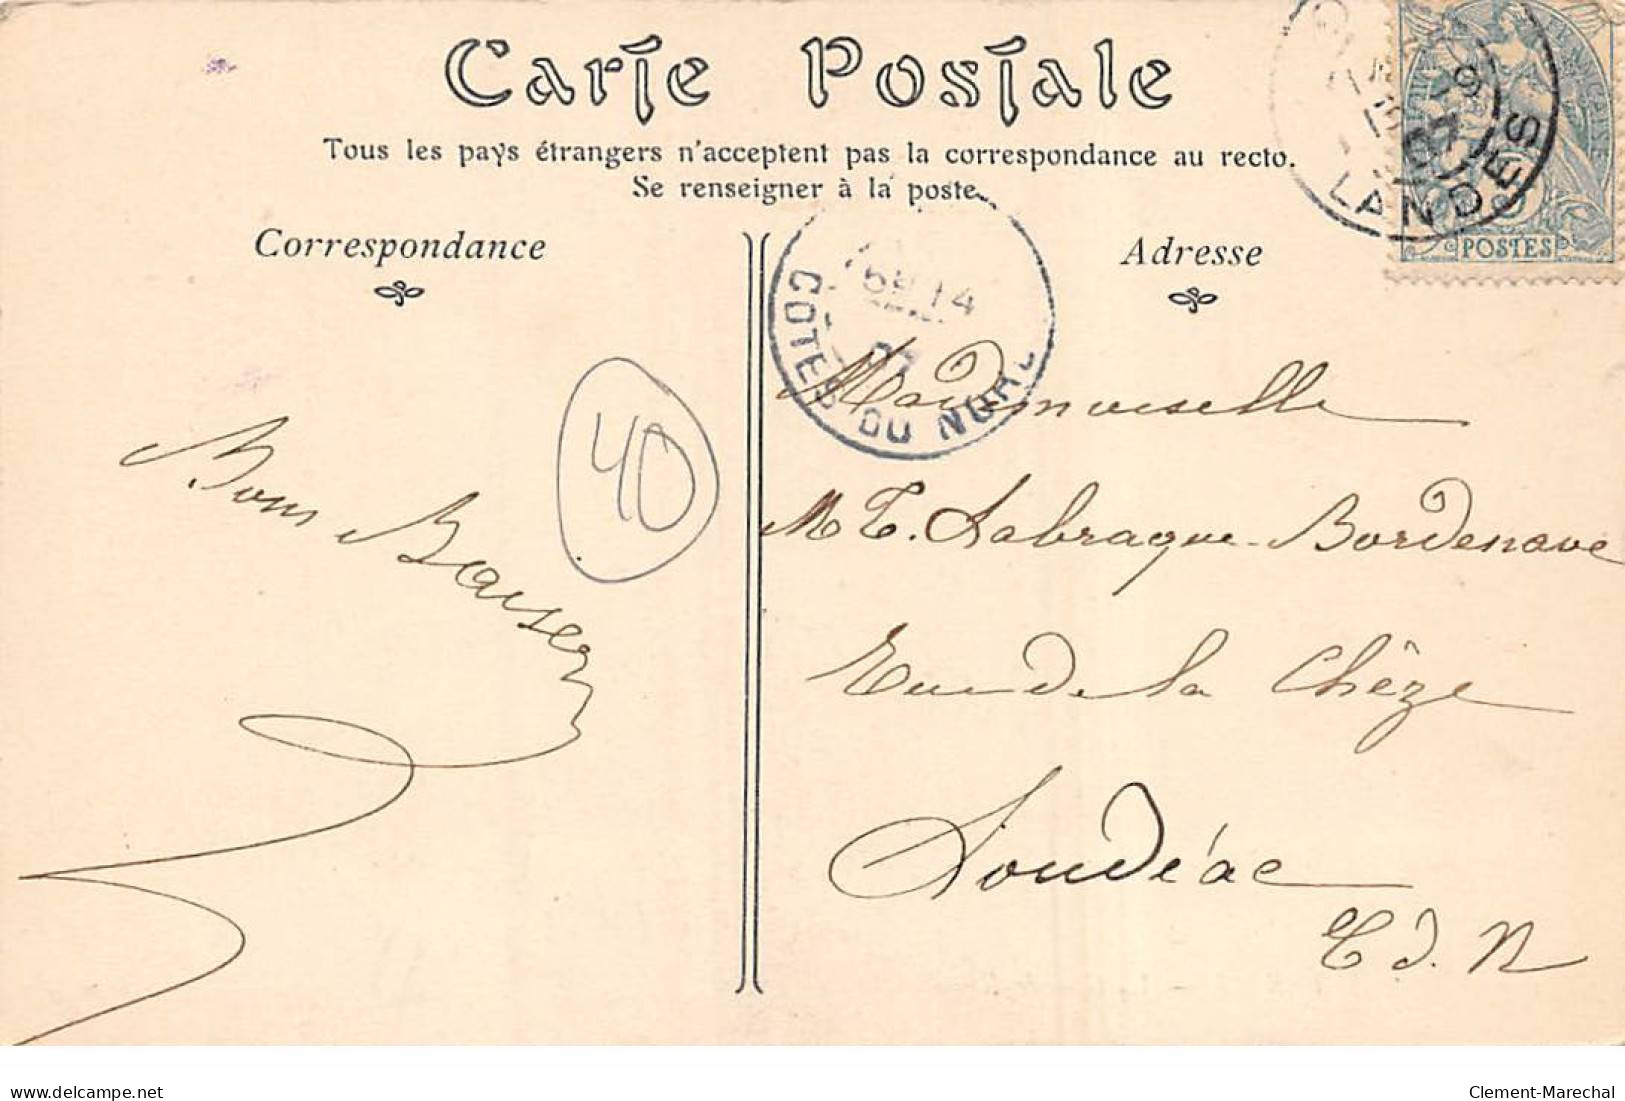 Carte Postale
Tous les pays étrangers n'acceptent pas la correspondance au recto.
Se renseigner à la poste
Correspondance
Adresse
LANDES
07
POSTES
14
07
COTES DU NORD
40
Bons Baisers
Mademoiselle
M T. Labraque-Bordenave
Rue de la Chèze
Loudéac
C d. N
delcampe.net
Clement-Marechal